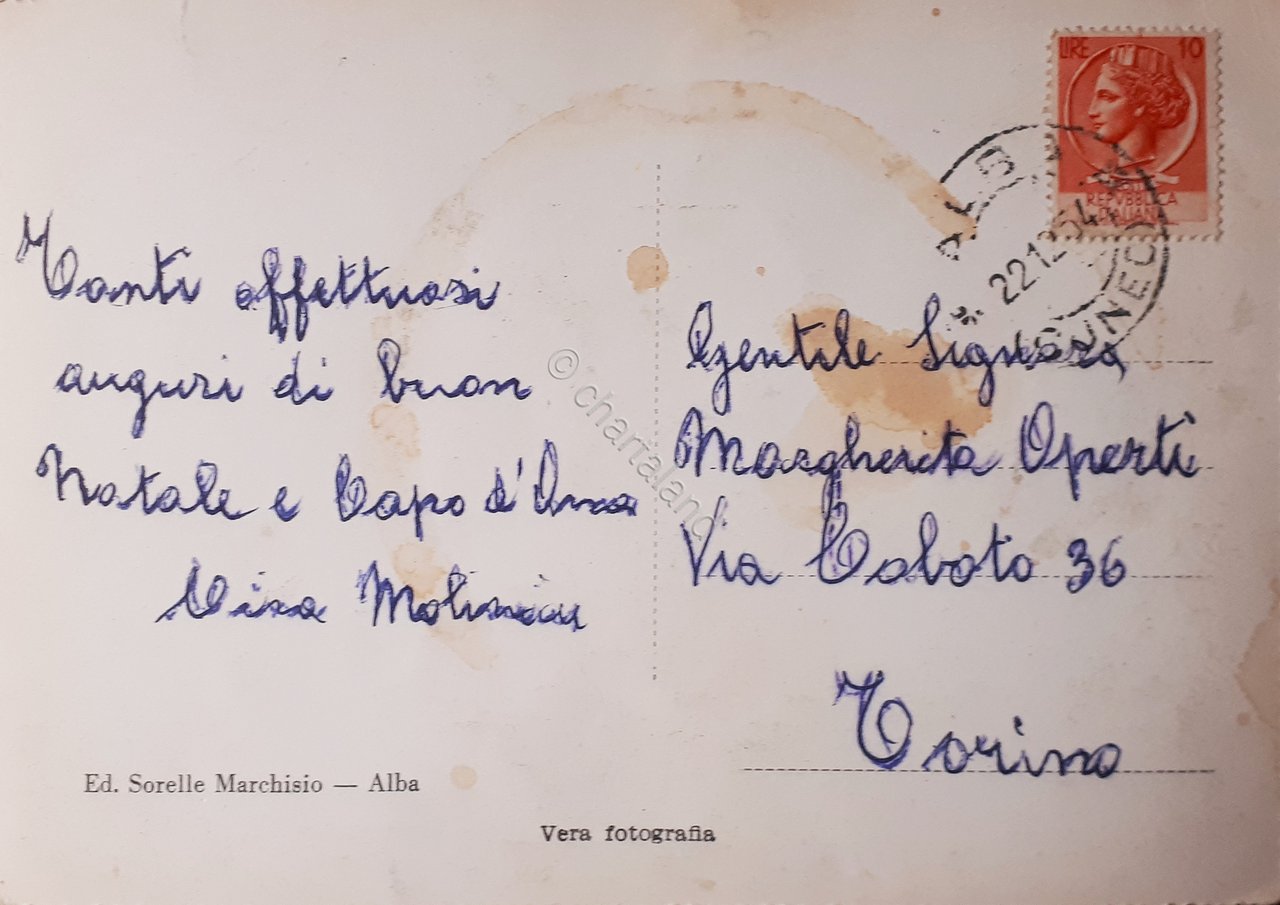 LIRE 10
REPVBBLICA
ITALIANA
ALBA
22.12.54
CUNEO
Tanti affettuosi
auguri di buon
Natale e Capo d'Anno
Molinari
Gentile Signora
Margherita Operti
Via Caboto 36
Torino
© chartaland
Ed. Sorelle Marchisio — Alba
Vera fotografia